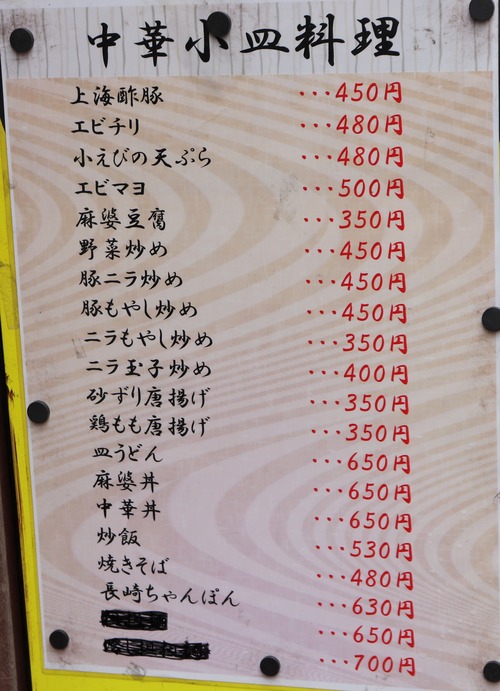 中華小皿料理
上海酢豚 ･･･450円
エビチリ ･･･480円
小えびの天ぷら ･･･480円
エビマヨ ･･･500円
麻婆豆腐 ･･･350円
野菜炒め ･･･450円
豚ニラ炒め ･･･450円
豚もやし炒め ･･･450円
ニラもやし炒め ･･･350円
ニラ玉子炒め ･･･400円
砂ずり唐揚げ ･･･350円
鶏もも唐揚げ ･･･350円
皿うどん ･･･650円
麻婆丼 ･･･650円
中華丼 ･･･650円
炒飯 ･･･530円
焼きそば ･･･480円
長崎ちゃんぽん ･･･630円
･･･650円
･･･700円